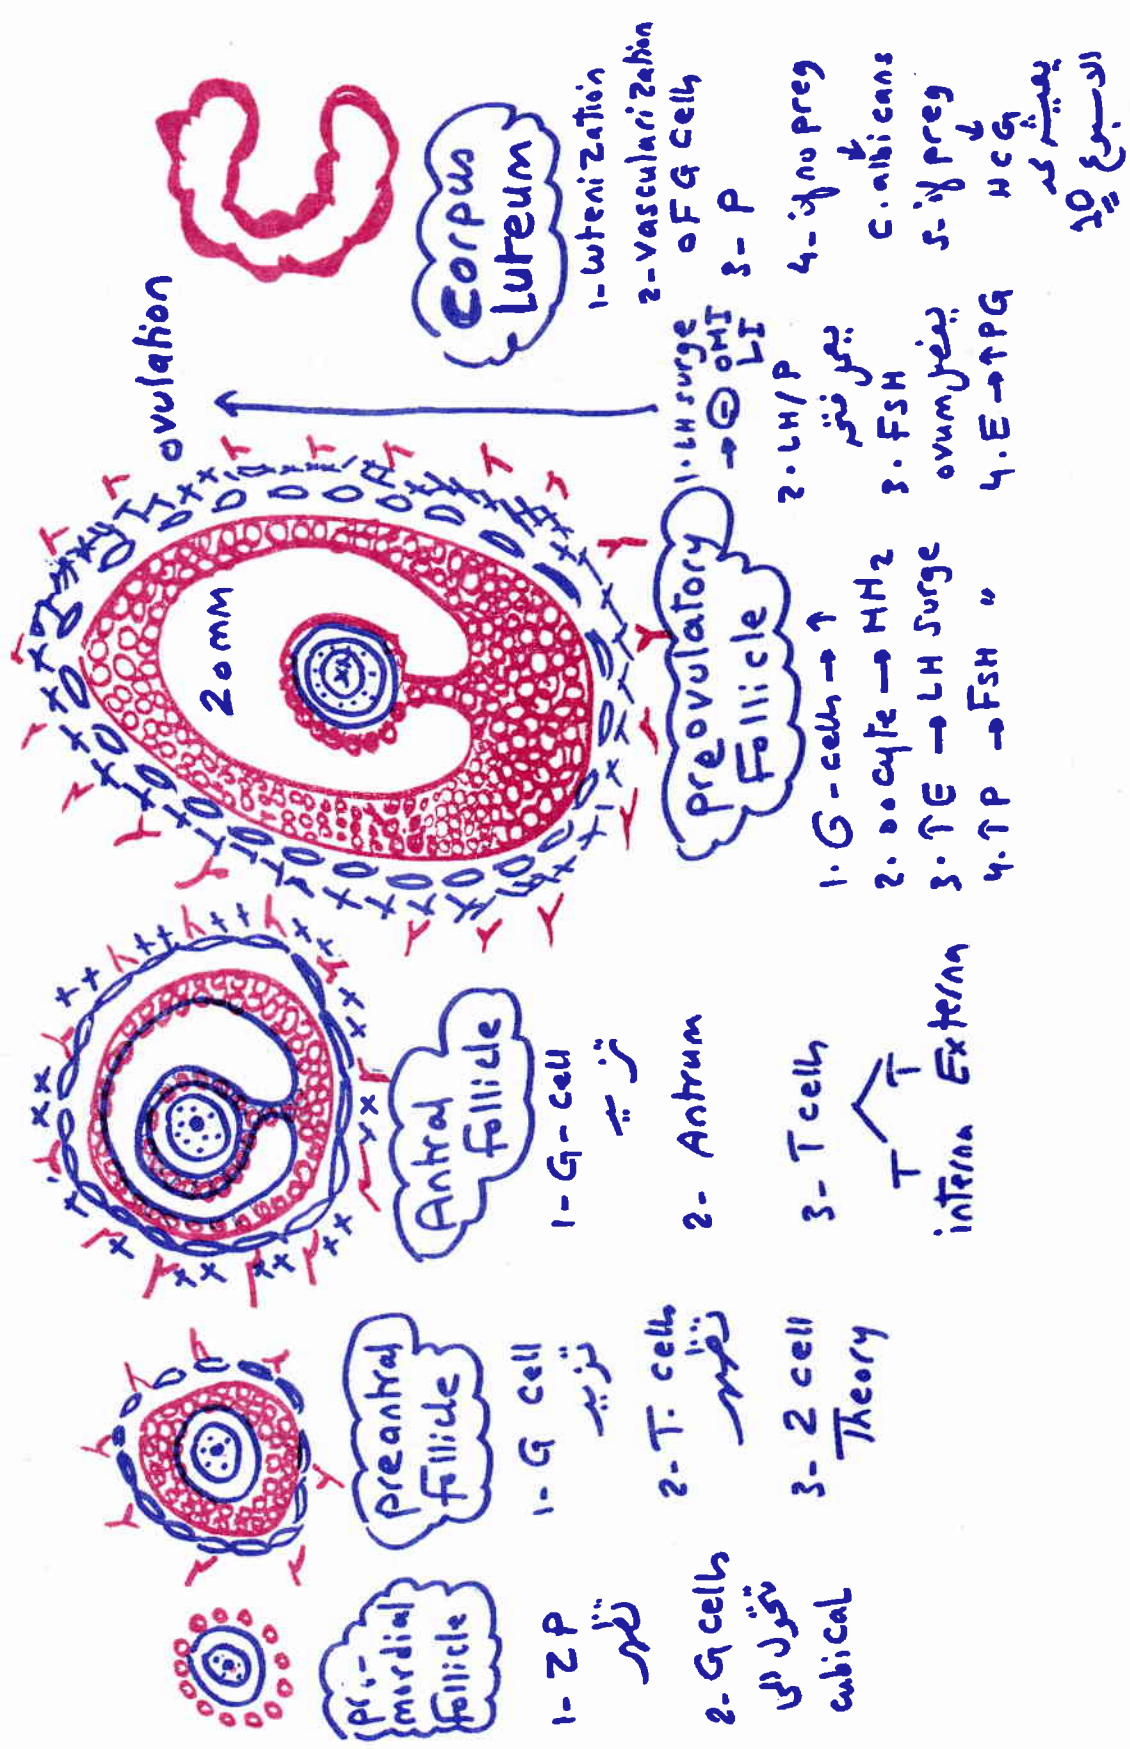 pri-
mordial
Follicle
1- ZP
تظهر
2- G cells
تتحول الى
cubical
preantral
Follicle
1- G cell
تزيد
2- T. cells
تظهر
3- 2 cell
Theory
Antral
Follicle
1- G- cell
تزيد
2- Antrum
3- T cells
T T
interna Externa
20 mm
preovulatory
Follicle
1. G-cells → ↑
2. oocyte → MM2
3. ↑E → LH Surge
4. ↑P → FSH "
ovulation
1. LH surge
→ ⊖ OMI
LI
2. LH/P
3. FSH
ovum
4. E → ↑PG
Corpus
Luteum
1- luteni zation
2- vasculari zation
oF G cells
3- P
4- if no preg
↓
C. albicans
5- if preg
↓
HCG
يعيش لحد
الاسبوع 10